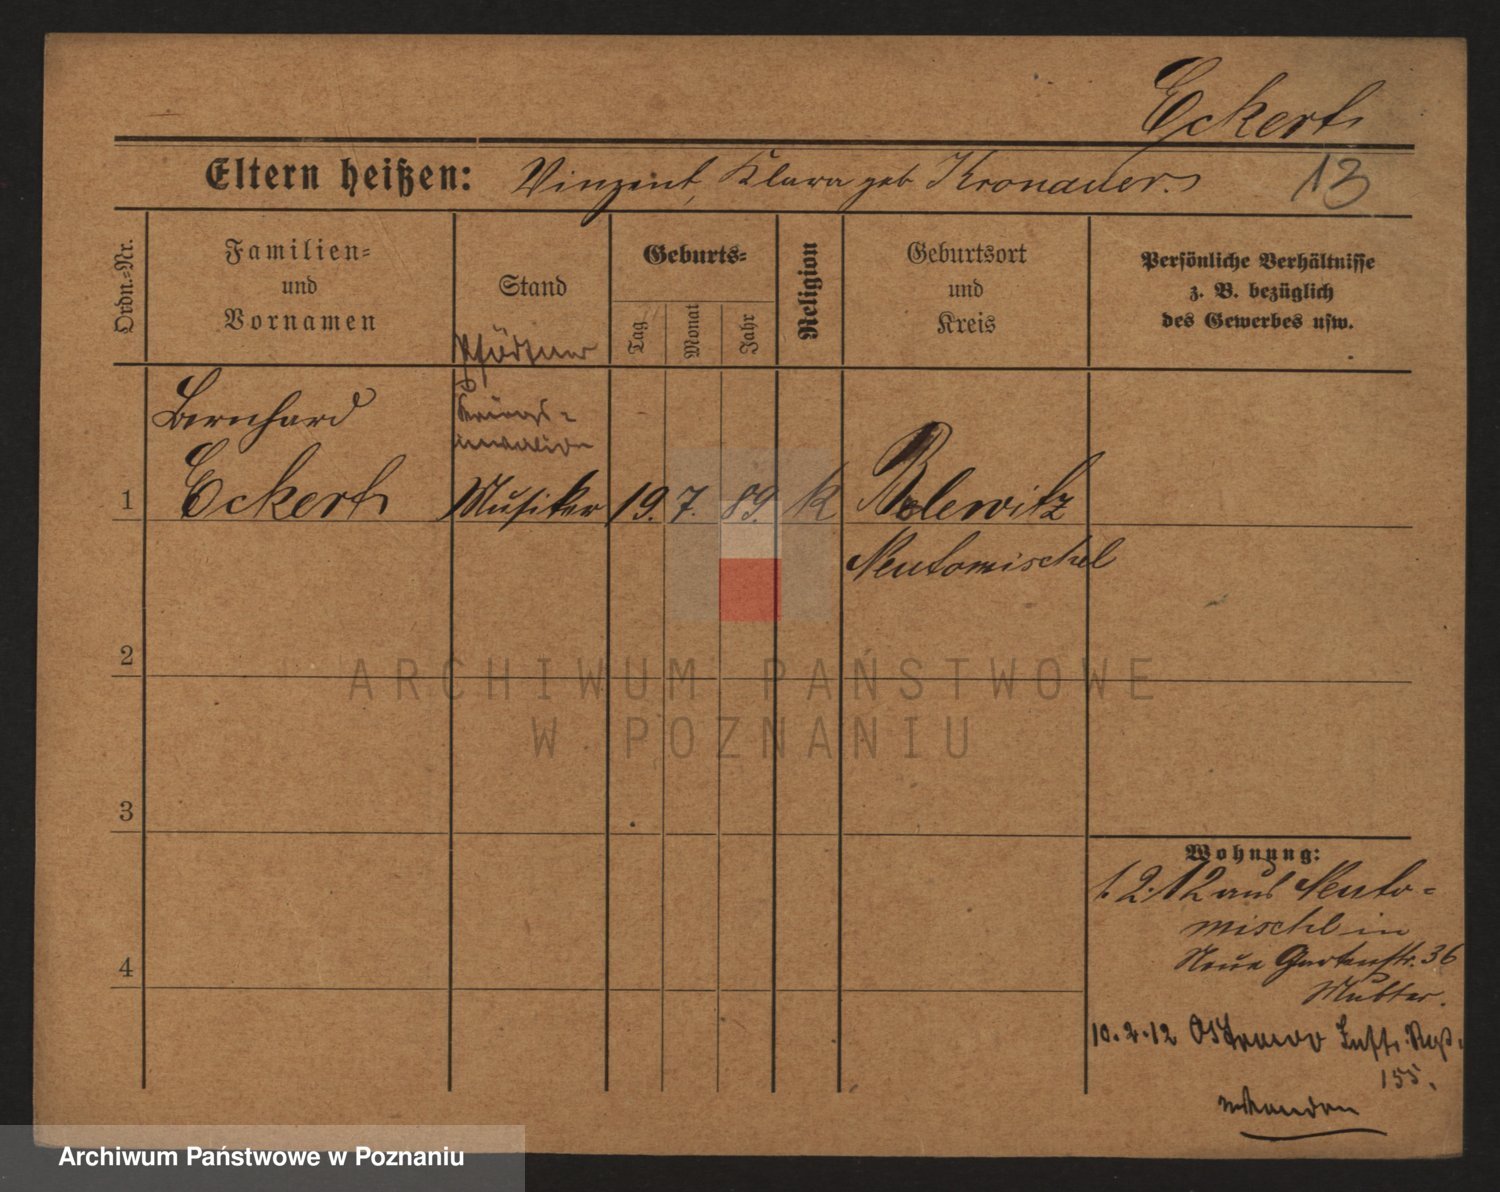 Eckert
Eltern heißen: Vinzent, Klara geb Kronauer.
13
Ordn.-Nr.
Familien-
und
Vornamen
Stand
Geburts-
Tag
Monat
Jahr
Religion
Geburtsort
und
Kreis
Persönliche Verhältnisse
z. B. bezüglich
des Gewerbes usw.
Pförtner
Kriegs-
invalide
Bernhard
1 Eckert Musiker 19. 7. 89. K Bolewitz
Neutomischel
2
ARCHIWUM PAŃSTWOWE
W POZNANIU
3
Wohnung:
1.2.12 aus Neuto-
mischl in
Neue Gartenstr. 36
Mutter.
4
10.2.12 Ostrowo Inftr. Regt.
155.
Archiwum Państwowe w Poznaniu